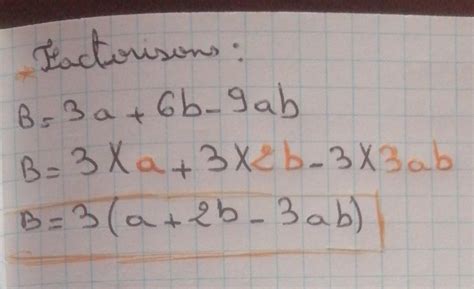 * Factorisons :
B = 3a + 6b - 9ab
B = 3 X a + 3 X 2b - 3 X 3ab
B = 3 (a + 2b - 3ab)